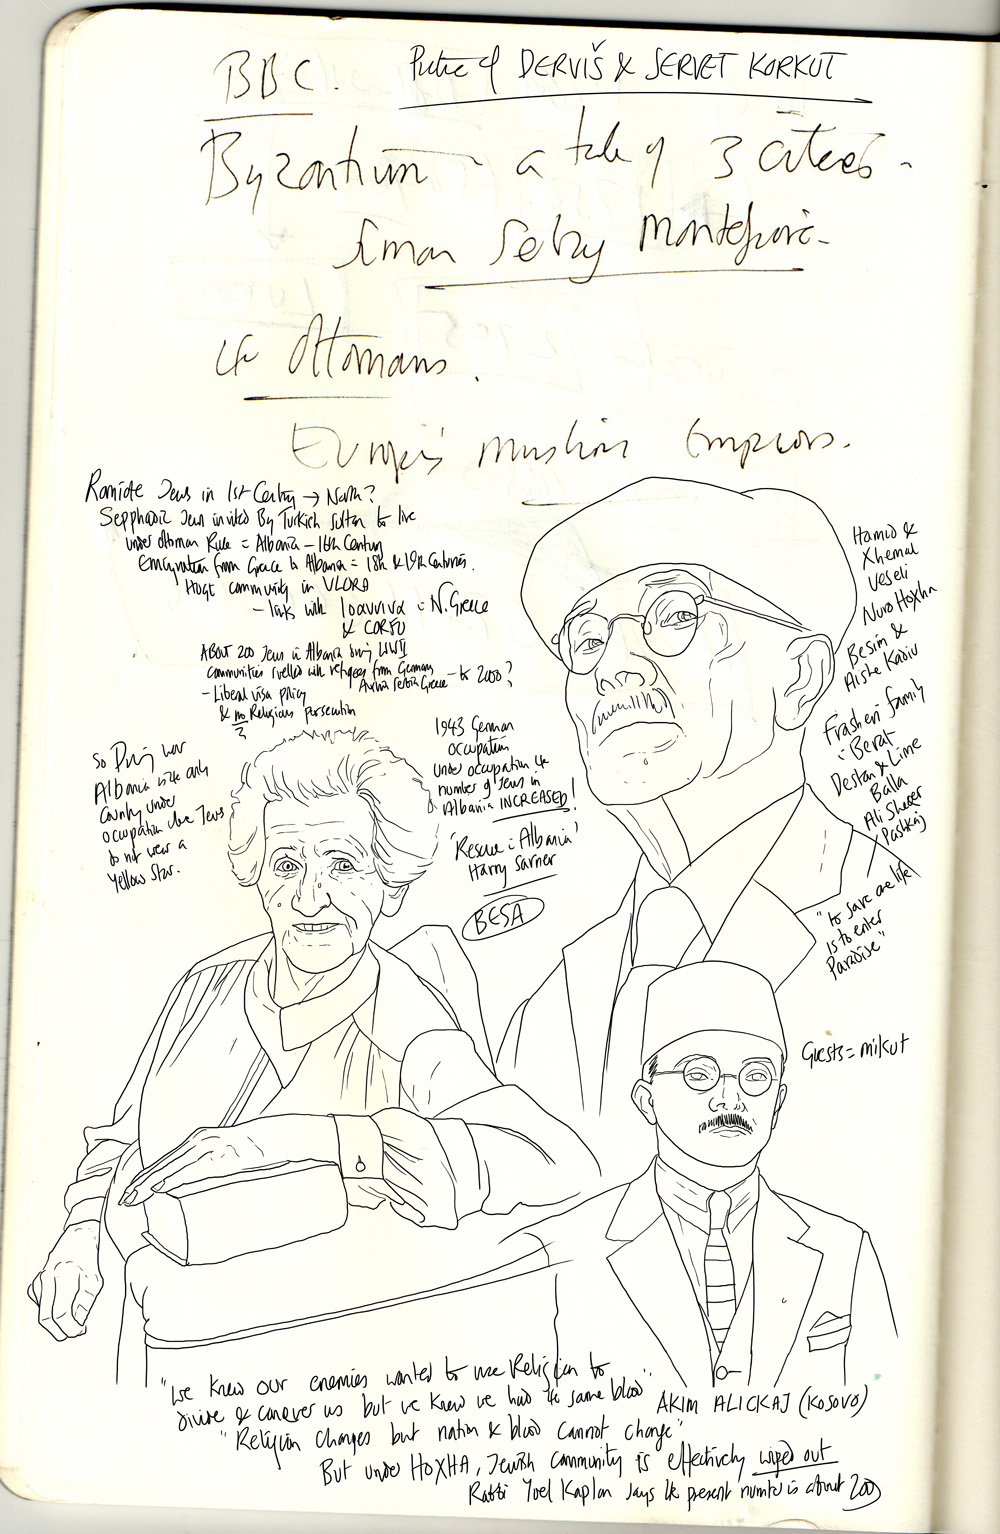 BBC.
Picture of DERVIŠ & SERVET KORKUT
Byzantium - a tale of 3 cities -
Simon Sebag Montefiore -
Ottomans.
Europe's muslim Emperors.
Romiote Jews in 1st Century → North?
Sepphardic Jews invited By Turkish Sultan to live
under Ottoman Rule = Albania - 16th Century
Emigration from Greece to Albania = 18th & 19th Centuries.
community in VLORA
- links with Ioavviva = N. Greece
& CORFU
ABOUT 200 Jews in Albania during WWII
communities swelled with refugees from Germany
Austria Serbia Greece - to 2000?
- Liberal visa policy
& no Religious persecution
?
So During war
Albania is the only
Country under
occupation where Jews
do not wear a
Yellow Star.
1943 German
occupation
under occupation the
number of Jews in
Albania INCREASED!
'Rescue in Albania'
Harry Sarner
BESA
Hamid &
Xhemal
Veseli
Nuro Hoxha
Besim &
Aishe Kadiu
Frasheri family
in Berat
Destan & Lime
Balla
Ali Sheqer
Pashkaj
"to save one life
is to enter
Paradise"
Guests = mikut
"We knew our enemies wanted to use Religion to
divide & conquer us but we knew we had the same blood"
AKIM ALICKAJ (KOSOVO)
"Religion changes but nation & blood cannot change"
But under HOXHA, Jewish community is effectively wiped out
Rabbi Yoel Kaplan says the present number is about 200